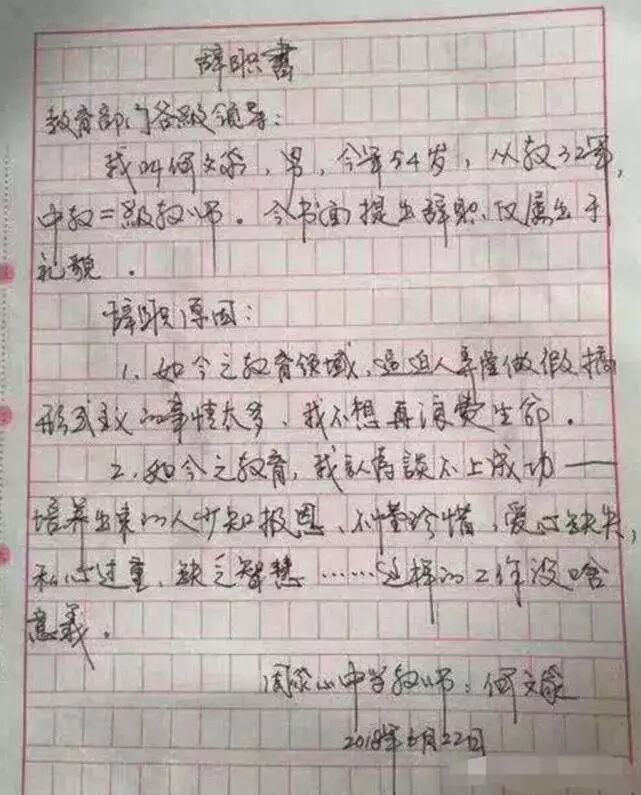 辞职书
教育部门各级领导：
我叫何文家，男，今年54岁，从教32年，
中教二级教师。今书面提出辞职、仅属出于
礼貌。
辞职原因：
1、如今之教育领域，逼迫人弄虚做假搞
形式主义的事情太多、我不想再浪费生命。
2、如今之教育，我认为谈不上成功——
培养出来的人少知报恩、不懂珍惜，爱心缺失，
私心过重、缺乏智慧……这样的工作没啥
意义。
中学教师：何文家
2018年 月22日